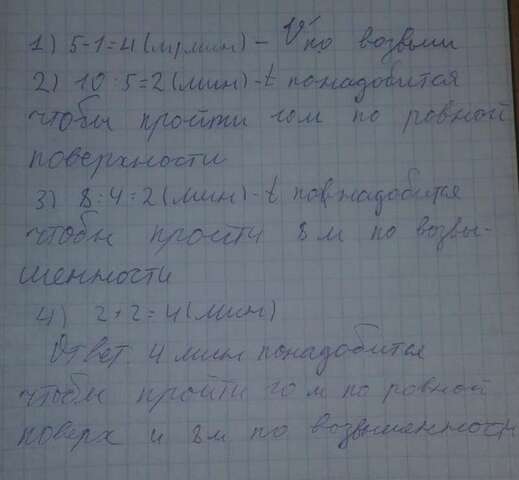 1) 5-1=4 (м/мин) - V по возвыш
2) 10:5=2 (мин) - t понадобится
чтобы пройти 10м по ровной
поверхности
3) 8:4=2 (мин) - t понадобится
чтобы пройти 8 м по возвы-
шенности
4) 2+2=4 (мин)
Ответ 4 мин понадобится
чтобы пройти 10 м по ровной
поверх и 8м по возвышенности